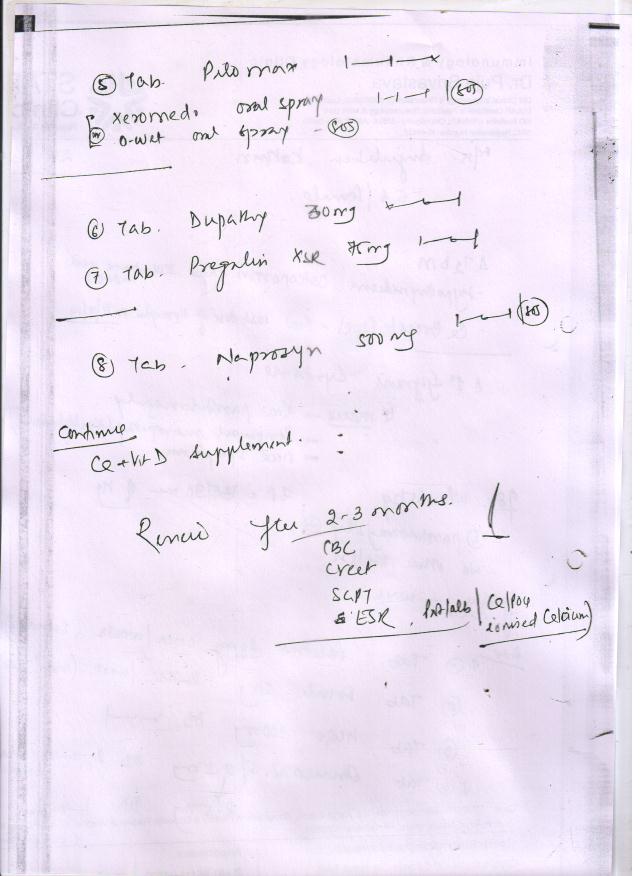 ⑤ Tab. Pilomax |—|—×
Xeromed. oral spray |—|—| SOS
or O-wet oral spray - SOS
⑥ Tab. Dupathy 30mg
⑦ Tab. Pregalin XSR 75mg
⑧ Tab. Naprosyn 500mg SOS
Continue
Ca + Vit D supplement.
Review after 2-3 months.
CBC
Creat
SGPT
ESR, Pr/alb | Ca/PO4
ionised Calcium)